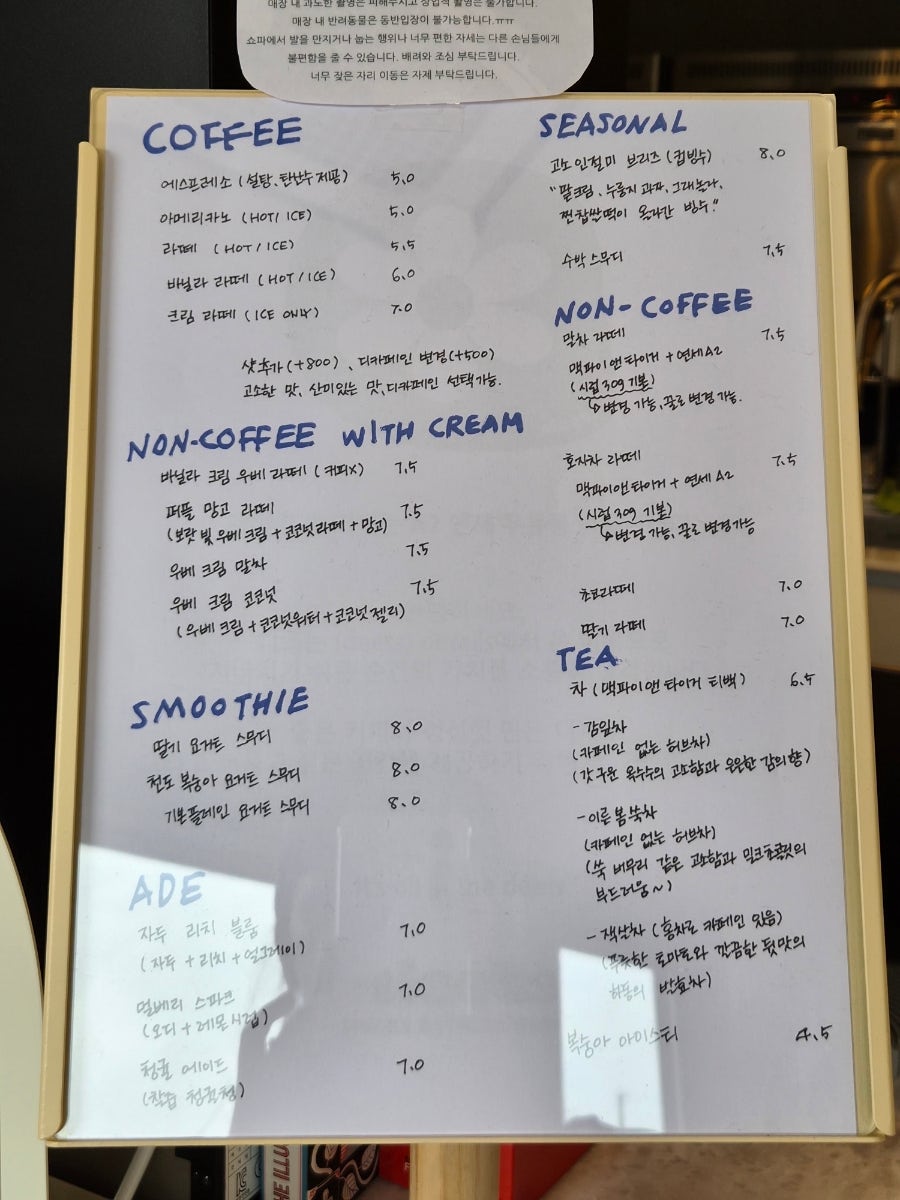 매장 내 과도한 촬영은 피해주시고 상업적 촬영은 불가합니다.
매장 내 반려동물은 동반입장이 불가능합니다.ㅠㅠ
쇼파에서 발을 만지거나 눕는 행위나 너무 편한 자세는 다른 손님들에게
불편함을 줄 수 있습니다. 배려와 조심 부탁드립니다.
너무 잦은 자리 이동은 자제 부탁드립니다.
COFFEE
에스프레소 (설탕, 탄산수 제공) 5.0
아메리카노 (HOT/ICE) 5.0
라떼 (HOT/ICE) 5.5
바닐라 라떼 (HOT/ICE) 6.0
크림 라떼 (ICE ONLY) 7.0
샷추가(+800), 디카페인 변경(+500)
고소한 맛, 산미있는 맛, 디카페인 선택가능.
NON-COFFEE WITH CREAM
바닐라 크림 우베 라떼 (커피X) 7.5
퍼플 망고 라떼 7.5
(보랏빛 우베크림 + 코코넛라떼 + 망고)
우베 크림 말차 7.5
우베 크림 코코넛 7.5
(우베크림 + 코코넛워터 + 코코넛 젤리)
SMOOTHIE
딸기 요거트 스무디 8.0
천도 복숭아 요거트 스무디 8.0
기본플레인 요거트 스무디 8.0
ADE
자두 리치 블룸 7.0
(자두 + 리치 + 얼그레이)
멀베리 스파크 7.0
(오디 + 레몬시럽)
청귤 에이드 7.0
(착즙 청귤청)
SEASONAL
고노 인절미 브리즈 (컵빙수) 8.0
"팥크림, 누룽지 과자, 그래놀라,
찐찹쌀떡이 올라간 빙수."
수박 스무디 7.5
NON-COFFEE
말차 라떼 7.5
맥파이앤타이거 + 연세A2
(시럽 30g 기본)
↳변경 가능, 꿀로 변경가능.
호지차 라떼 7.5
맥파이앤타이거 + 연세A2
(시럽 30g 기본)
↳변경 가능, 꿀로 변경가능
초코라떼 7.0
딸기 라떼 7.0
TEA
차 (맥파이앤타이거 티백) 6.5
- 감잎차
(카페인 없는 허브차)
(갓 구운 옥수수의 고소함과 은은한 감의 향)
- 이른 봄 쑥차
(카페인 없는 허브차)
(쑥 버무리 같은 고소함과 밀크초콜릿의
부드러움~)
- 잭살차 (홍차로 카페인 있음)
(푸릇한 토마토와 깔끔한 뒷맛의
하동의 발효차)
복숭아 아이스티 4.5
THE ILLU